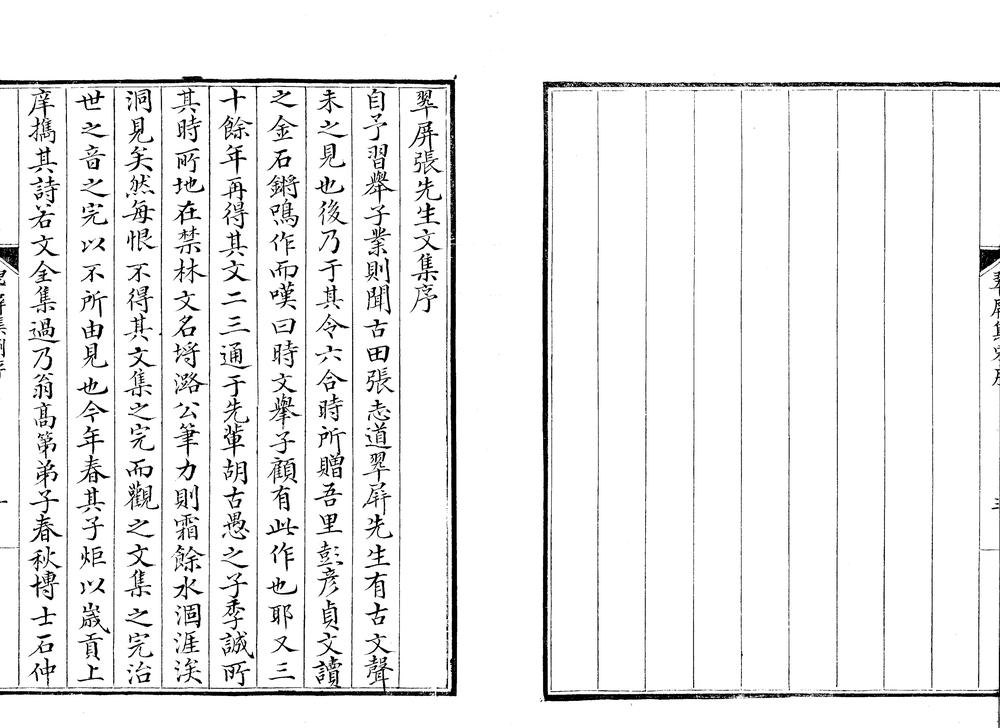 翠屏張先生文集序
自予習舉子業則聞古田張志道翠屏先生有古文聲
未之見也後乃于其令六合時所贈吾里彭彥貞文讀
之金石鏘鳴作而嘆曰時文舉子顧有此作也耶又三
十餘年再得其文二三通于先輩胡古愚之子季誠所
其時所地在禁林文名埒潞公筆力則霜餘水涸涯涘
洞見矣然每恨不得其文集之完而觀之文集之完治
世之音之完以不所由見也今年春其子炬以歲貢上
庠攜其詩若文全集過乃翁高第弟子春秋博士石仲